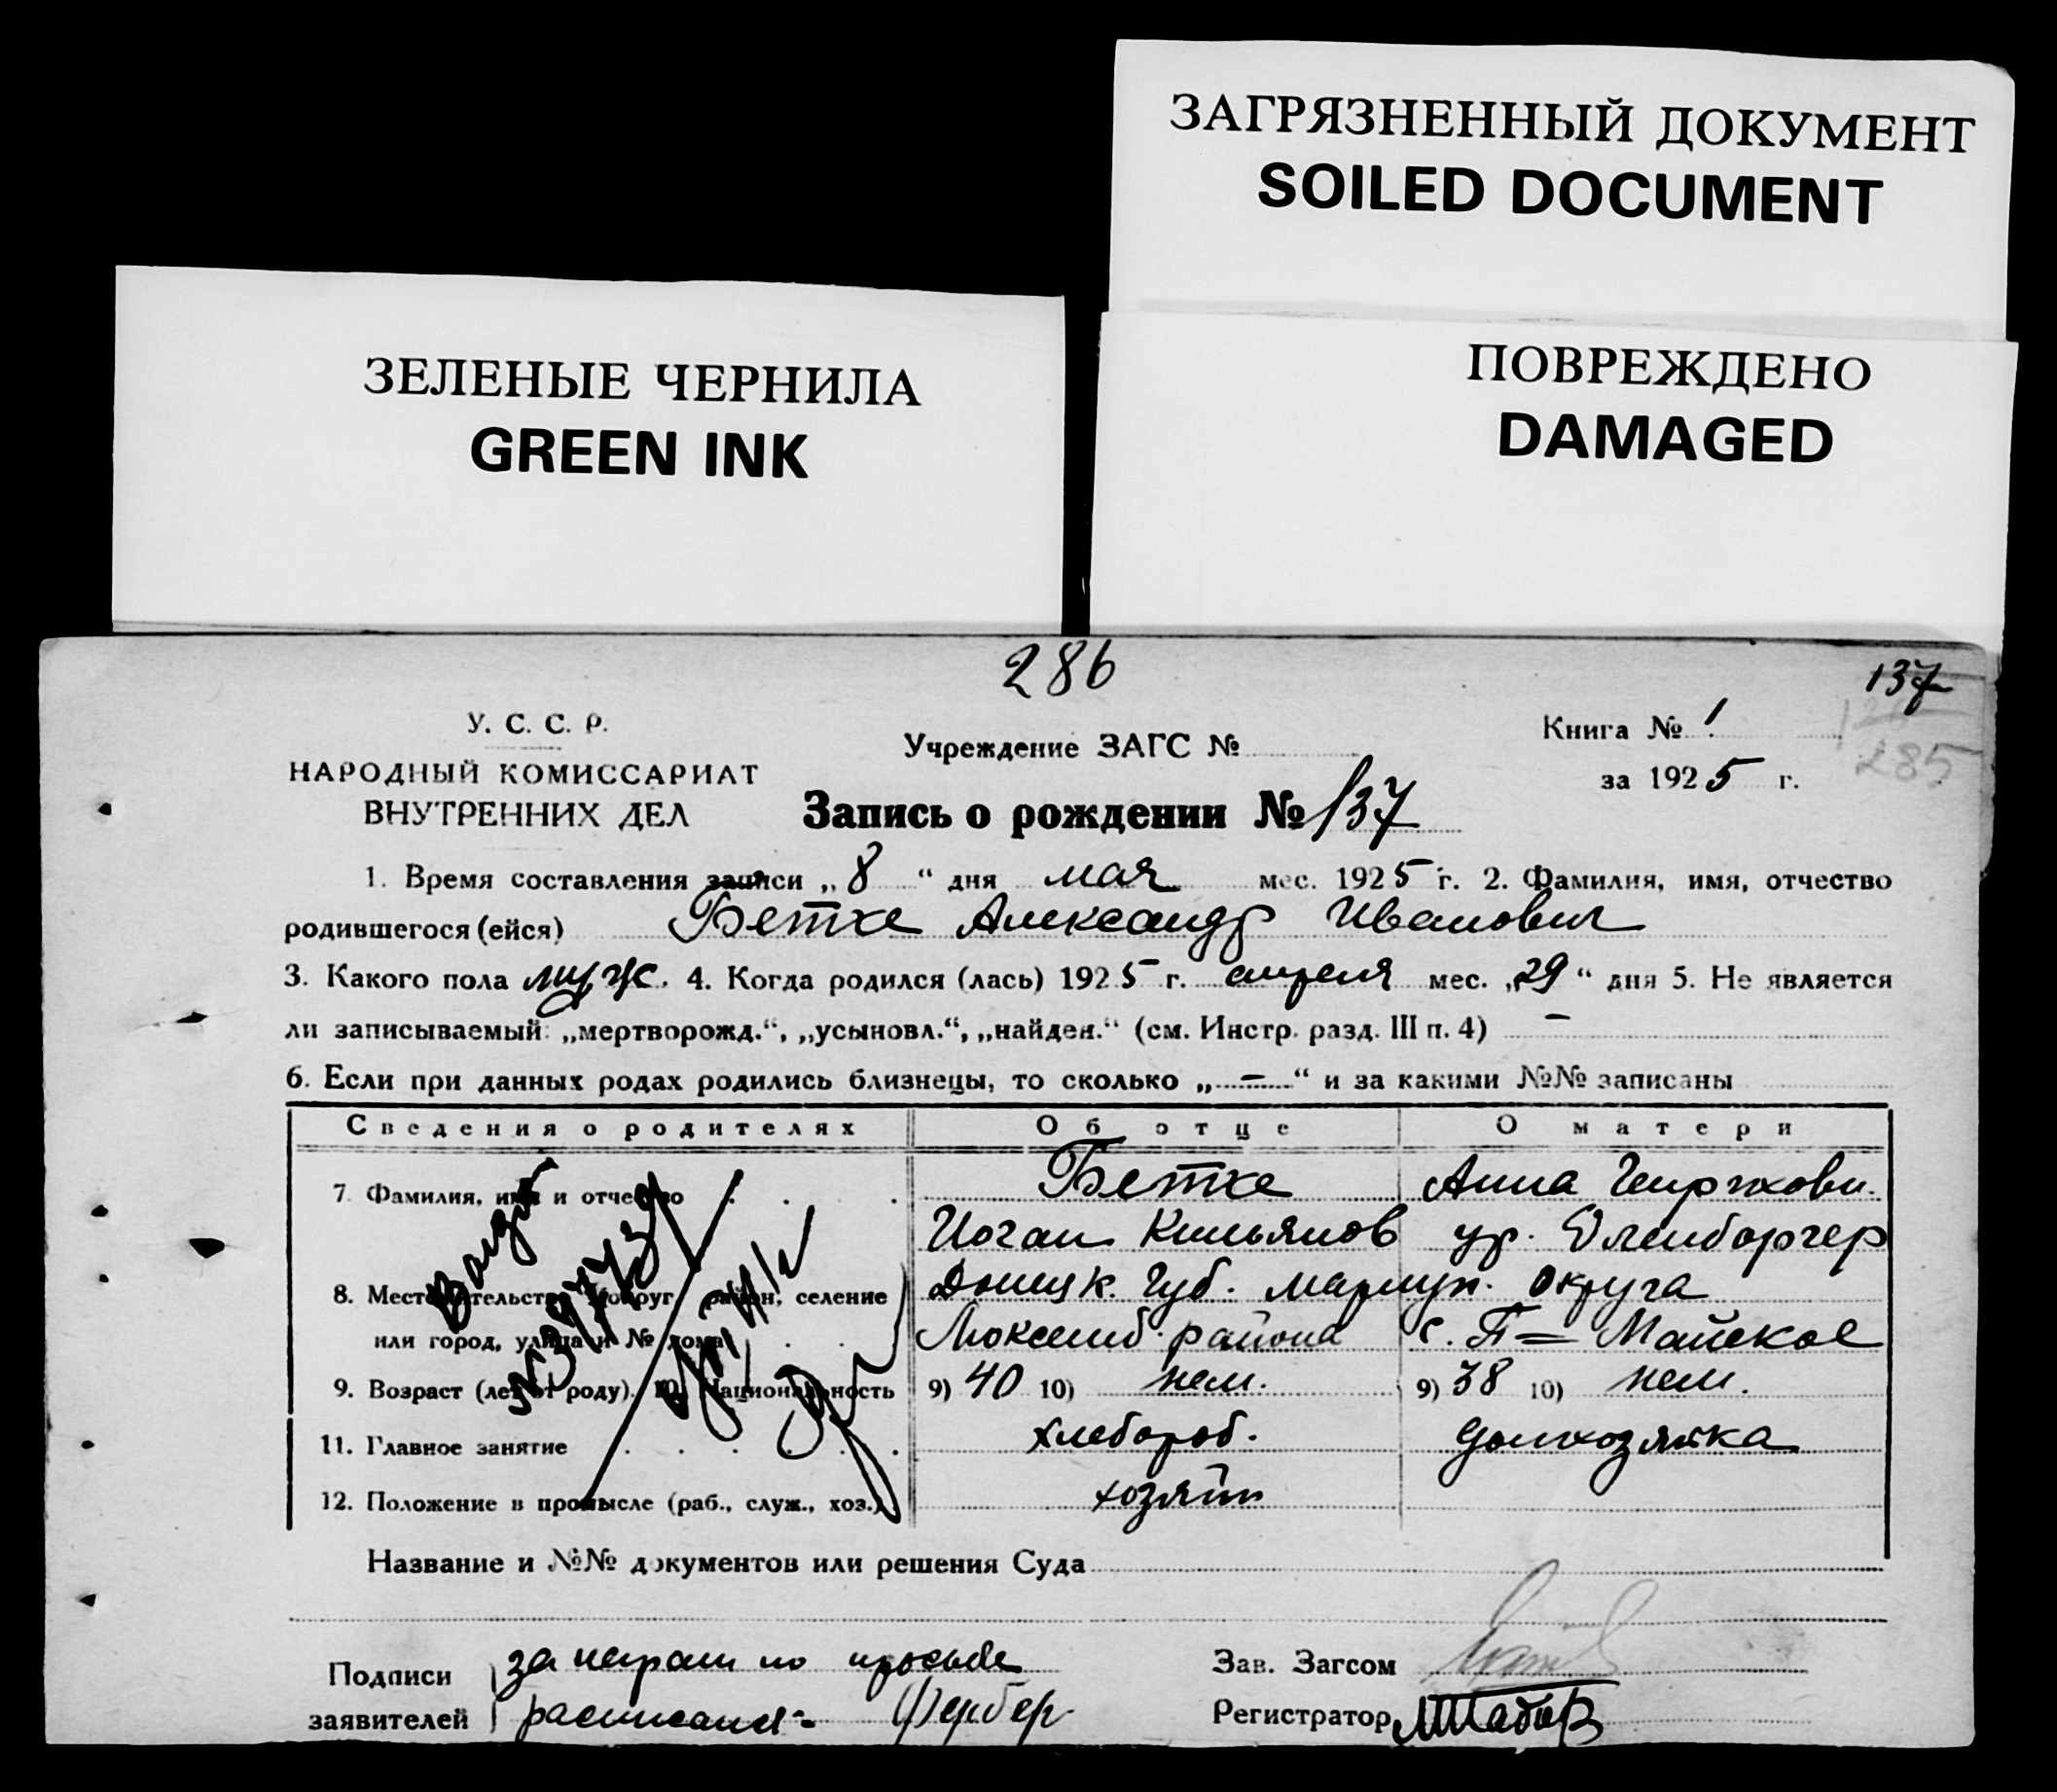 ЗАГРЯЗНЕННЫЙ ДОКУМЕНТ
SOILED DOCUMENT
ЗЕЛЕНЫЕ ЧЕРНИЛА
GREEN INK
ПОВРЕЖДЕНО
DAMAGED
286
137
285
У. С. С. Р.
НАРОДНЫЙ КОМИССАРИАТ
ВНУТРЕННИХ ДЕЛ
Учреждение ЗАГС №
Книга № 1
за 1925 г.
Запись о рождении № 137
1. Время составления записи „8“ дня мая мес. 1925 г. 2. Фамилия, имя, отчество
родившегося (ейся) Бетхе Александр Иванович
3. Какого пола муж. 4. Когда родился (лась) 1925 г. апреля мес. „29“ дня 5. Не является
ли записываемый: „мертворожд.“, „усыновл.“, „найден.“ (см. Инстр. разд. III п. 4) –
6. Если при данных родах родились близнецы, то сколько „–“ и за какими №№ записаны
Сведения о родителях Об отце О матери
7. Фамилия, имя и отчество Бетхе Анна
Иоган ур.
8. Местожительство (округ, район, селение Донецк. Губ. Мариуп. Округа
или город, улица и № дома) Люксемб. района с. П= Майское
9. Возраст (лет от роду). 10. Национальность 9) 40 10) нем. 9) 38 10) нем.
11. Главное занятие хлебороб. домхозяйка
12. Положение в промысле (раб., служ., хоз.) хозяин
Название и №№ документов или решения Суда
Подписи за неграм по просьбе
заявителей расписался= Фербер
Зав. Загсом
Регистратор